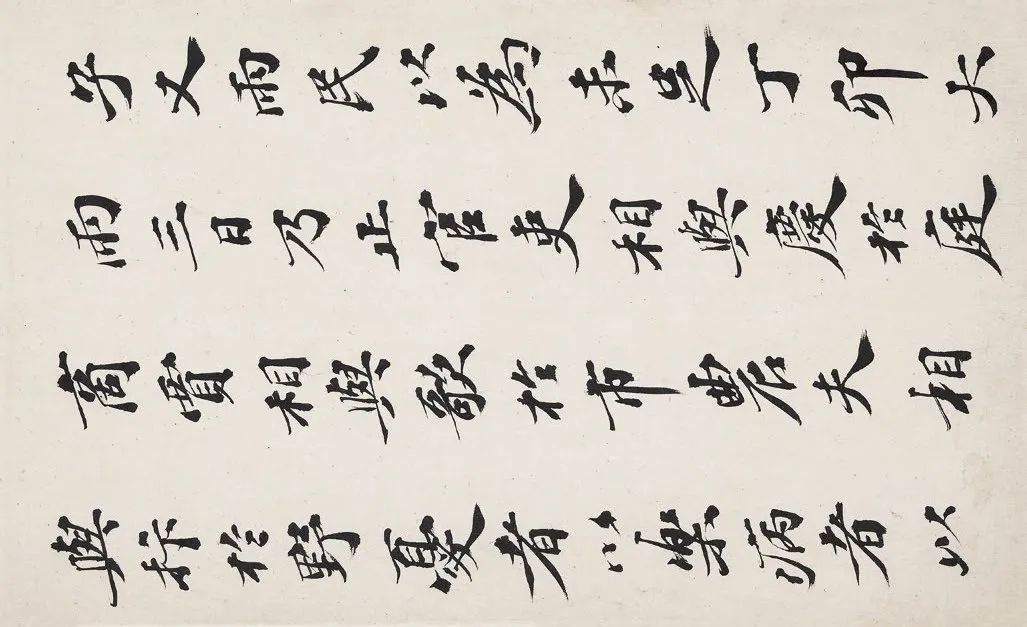 子又雨民以為未足丁卯大
雨三日乃止官吏相與慶於庭
商賈相與歌於市農夫相
與抃於野憂者以樂病者以